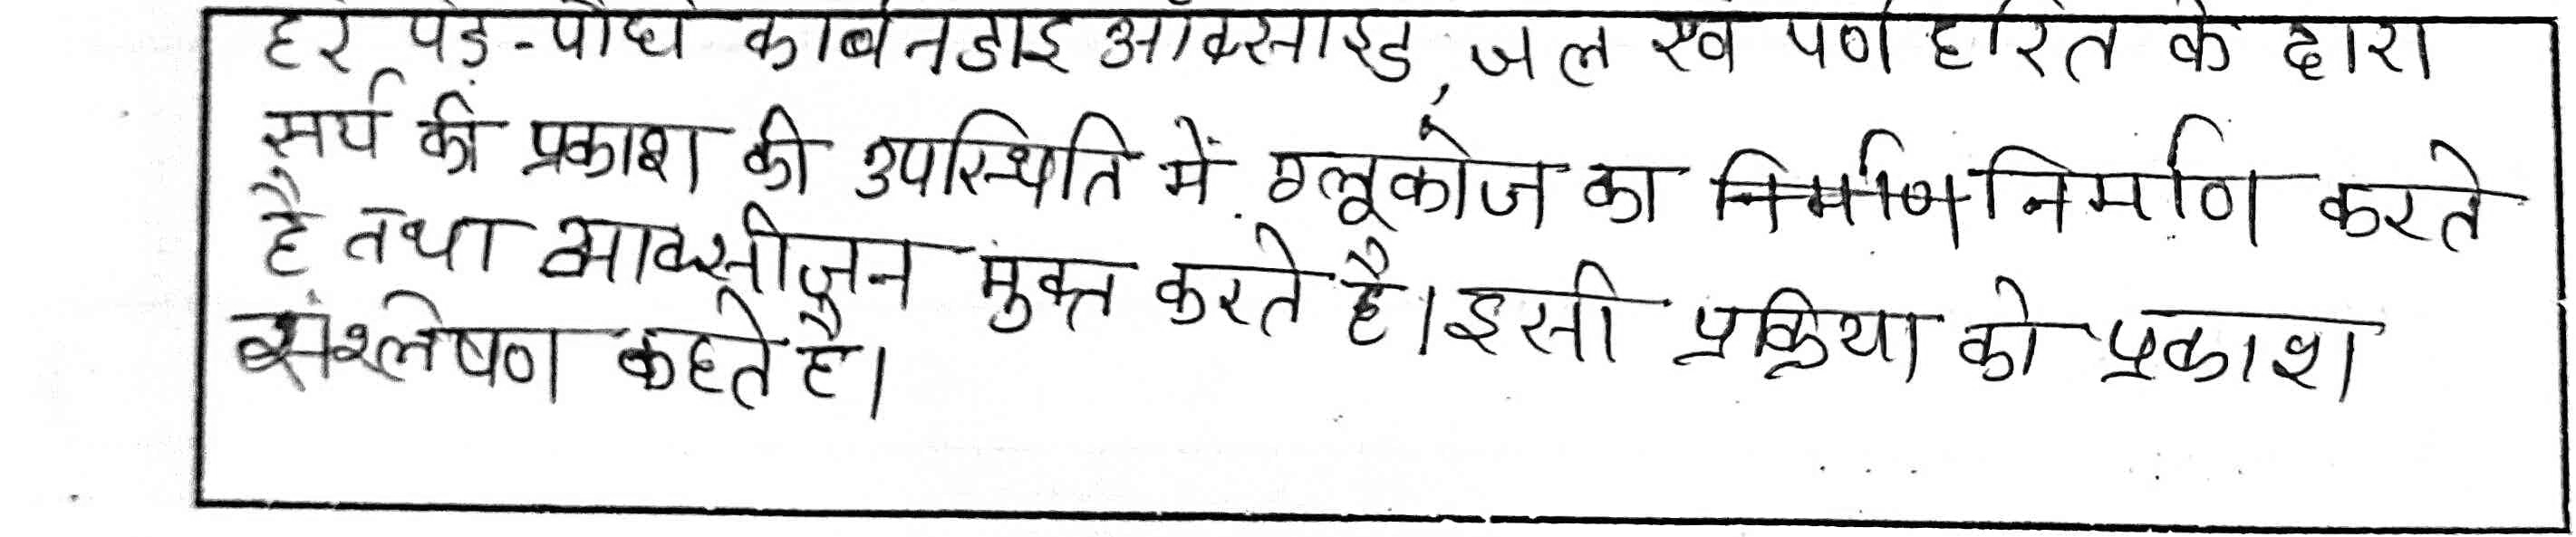 हरे पेड़-पौधे कार्बनडाइऑक्साइड, जल एवं पर्णहरित के द्वारा
सूर्य की प्रकाश की उपस्थिति में ग्लूकोज का निर्माण निर्माण करते
है तथा आक्सीजन मुक्त करते है। इसी प्रक्रिया को प्रकाश
संश्लेषण कहते है।